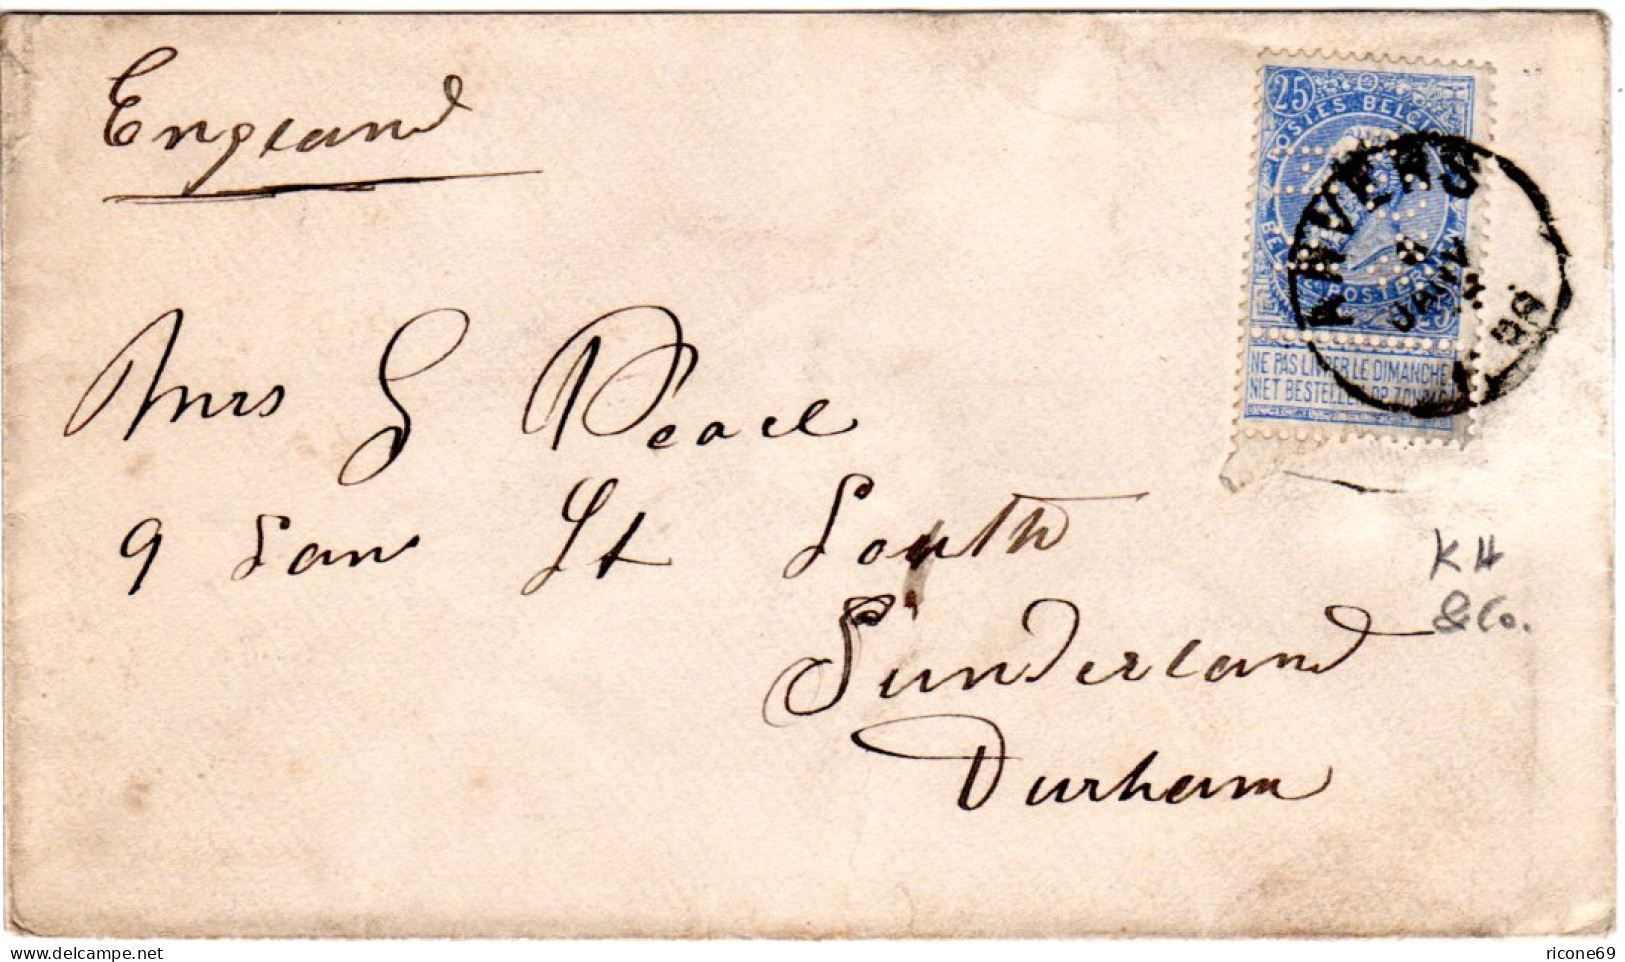 England
25
POSTES BELGI
POSTER
25
NE PAS LIVRER LE DIMANCHE
NIET BESTELLEN OP ZONDAG
ANVERS
JANV
Mrs S Peace
9 St South
Sunderland
Durham
K H
& Co.
www.delcampe.net
ricone69